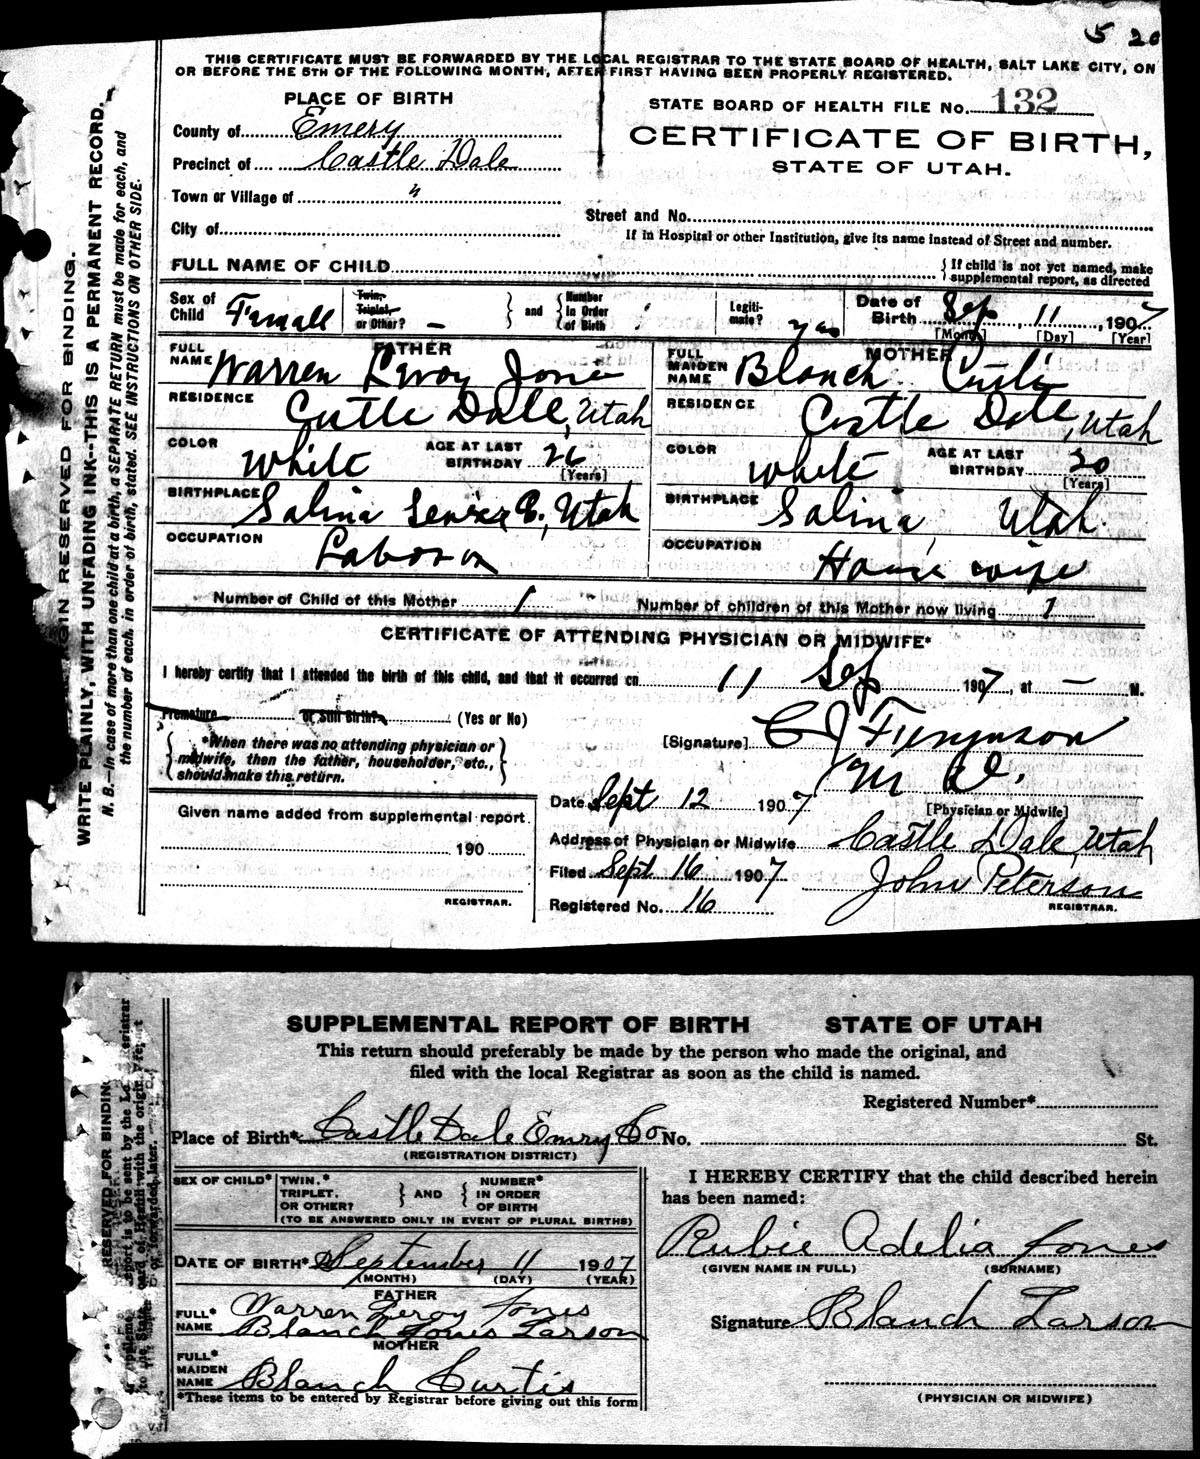 5 20
THIS CERTIFICATE MUST BE FORWARDED BY THE LOCAL REGISTRAR TO THE STATE BOARD OF HEALTH, SALT LAKE CITY, ON
OR BEFORE THE 5TH OF THE FOLLOWING MONTH, AFTER FIRST HAVING BEEN PROPERLY REGISTERED.
PLACE OF BIRTH
County of Emery
Precinct of Castle Dale
Town or Village of "
City of
STATE BOARD OF HEALTH FILE No. 132
CERTIFICATE OF BIRTH,
STATE OF UTAH.
Street and No.
If in Hospital or other Institution, give its name instead of Street and number.
FULL NAME OF CHILD { If child is not yet named, make supplemental report, as directed
Sex of Child Femall Twin, Triplet, or Other? — } and { Number in Order of Birth Legiti-mate? yes Date of Birth Sep, 11, 1907 [Month] [Day] [Year]
FATHER
FULL NAME Warren Leroy Jones
RESIDENCE Castle Dale, Utah
COLOR White AGE AT LAST BIRTHDAY 26 [Years]
BIRTHPLACE Salina Sevier C., Utah
OCCUPATION Laborer
MOTHER
FULL MAIDEN NAME Blanch Curtis
RESIDENCE Castle Dale, Utah
COLOR White AGE AT LAST BIRTHDAY 20 [Years]
BIRTHPLACE Salina, Utah
OCCUPATION House wife
Number of Child of this Mother 1 Number of children of this Mother now living 1
CERTIFICATE OF ATTENDING PHYSICIAN OR MIDWIFE*
I hereby certify that I attended the birth of this child, and that it occurred on 11 Sep 1907, at — M.
Premature or Still Birth? (Yes or No)
{ *When there was no attending physician or
midwife, then the father, householder, etc.,
should make this return. }
[Signature] C J
M D.
[Physician or Midwife]
Given name added from supplemental report
190
REGISTRAR.
Date Sept 12 1907
Address of Physician or Midwife Castle Dale, Utah
Filed Sept 16 1907 John Peterson
Registered No. 16 REGISTRAR.
MARGIN RESERVED FOR BINDING.
WRITE PLAINLY, WITH UNFADING INK--THIS IS A PERMANENT RECORD.
N. B.—In case of more than one child at a birth, a SEPARATE RETURN must be made for each, and
the number of each, in order of birth, stated. SEE INSTRUCTIONS ON OTHER SIDE.
SUPPLEMENTAL REPORT OF BIRTH STATE OF UTAH
This return should preferably be made by the person who made the original, and
filed with the local Registrar as soon as the child is named.
Registered Number*
Place of Birth* Castle Dale Emry Co No. St.
(REGISTRATION DISTRICT)
SEX OF CHILD* TWIN,* TRIPLET, OR OTHER? } AND { NUMBER* IN ORDER OF BIRTH
(TO BE ANSWERED ONLY IN EVENT OF PLURAL BIRTHS)
DATE OF BIRTH* September 11 1907
(MONTH) (DAY) (YEAR)
FATHER
FULL* NAME Warren Leroy Jones
Blanch Jones Larson
MOTHER
FULL* MAIDEN NAME Blanch Curtis
*These items to be entered by Registrar before giving out this form
I HEREBY CERTIFY that the child described herein
has been named:
Rubie Adelia Jones
(GIVEN NAME IN FULL) (SURNAME)
Signature Blanch Larson
(PHYSICIAN OR MIDWIFE)
RESERVED FOR BINDING